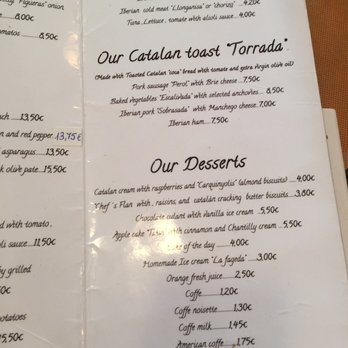 "Figueras" onion
8,00€
tomatos ... 8,50€
nch ......13,50€
on and red pepper. 13,75€
asparagus .....13,50€
k olive pate .....15,50€
with tomato.
oli sauce ...11,50€
by grilled
0,50€
potatoes
15,50€
Iberian cold meat "Llonganisa" or "chorizo" 4,20€
Tuna, Lettuce, tomato with alioli sauce ...4,00€
Our Catalan toast "Torrada".
(Made with Toasted Catalan "coca" bread with tomato and extra Virgin olive oil)
Pork sausage "Perol" with Brie cheese ...7,50€
Baked Vegetables "Escalivada" with selected anchovies ... 8,50€
Iberian pork "Sobrasada" with Manchego cheese .7,00€
Iberian ham .....7,50€
Our Desserts
Catalan cream with raspberries and "Carquinyolis" (almond biscuits) ...4,00€
Chef's Flan with, raisins and catalan cracking butter biscuits ...3,80€
Chocolate culant with Vanilla ice cream ..5,50€
Apple cake with cinnamon and Chantilly cream ...5,50€
of the day .... 4,00€
Homemade Ice cream "La fageda" ... 3,00€
Orange fresh juice ..... 2,50€
Coffe ..... 1,20€
Coffe noisette ..... 1,30€
Coffe milk ..... 1,45€
American coffe .... 1,75€